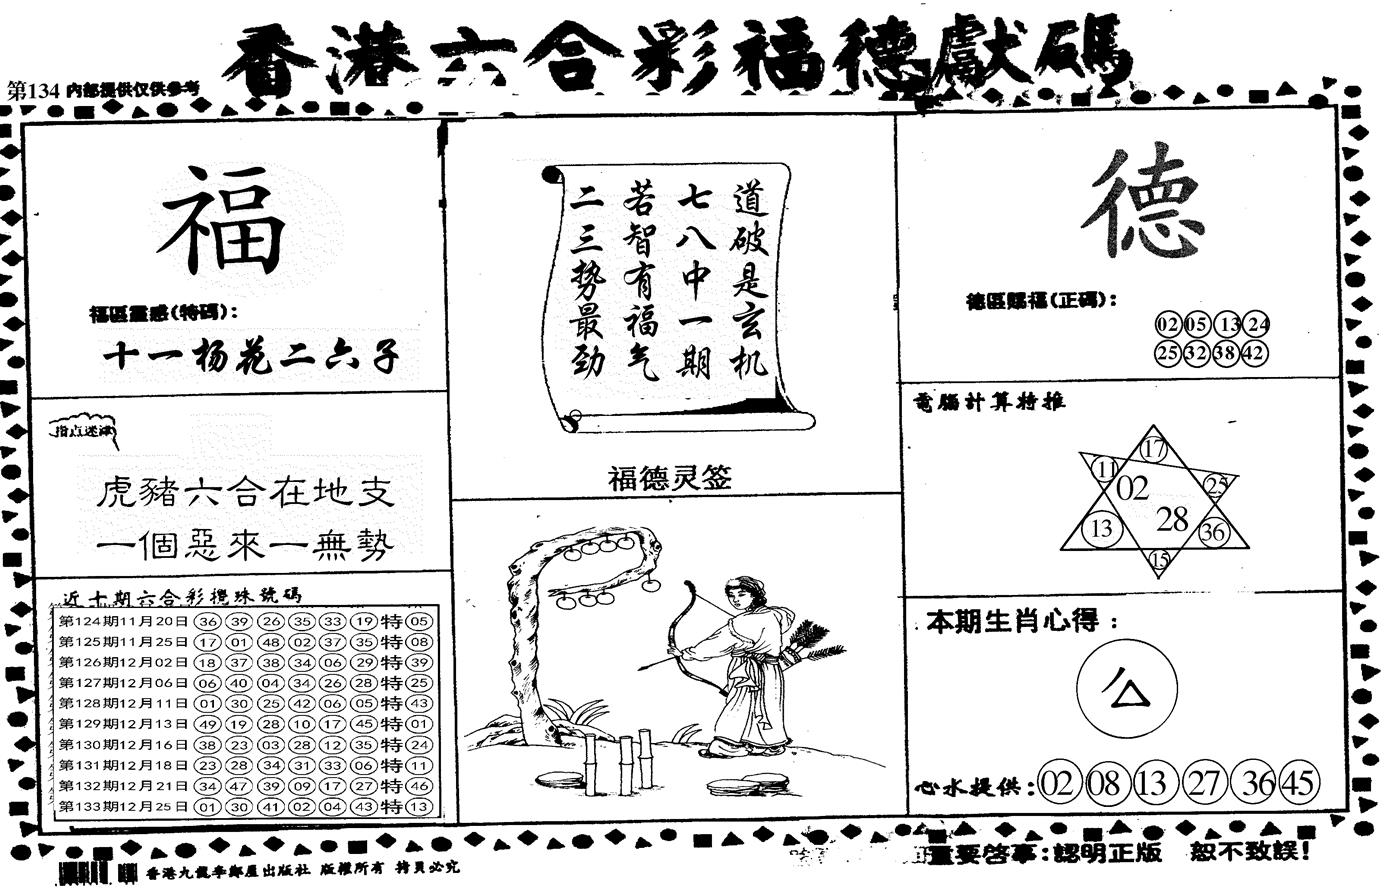 香港六合彩福德獻碼
第134 内部提供仅供参考
福
福區靈感(特碼):
十一杨花二六子
指点迷津
虎豬六合在地支
一個惡來一無勢
近十期六合彩攪珠號碼
第124期11月20日 36 39 26 35 33 19 特 05
第125期11月25日 17 01 48 02 37 35 特 08
第126期12月02日 18 37 38 34 06 29 特 39
第127期12月06日 06 40 04 34 26 28 特 25
第128期12月11日 01 30 25 42 06 05 特 43
第129期12月13日 49 19 28 10 17 45 特 01
第130期12月16日 38 23 03 28 12 35 特 24
第131期12月18日 23 28 34 31 33 06 特 11
第132期12月21日 34 47 39 09 17 27 特 46
第133期12月25日 01 30 41 02 04 43 特 13
道破是玄机
七八中一期
若智有福气
二三势最劲
福德灵签
德
德區賜福(正碼):
02 05 13 24
25 32 38 42
電腦計算特推
17
11 25
02
28
13 36
15
本期生肖心得:
心水提供: 02 08 13 27 36 45
重要啓事:認明正版 恕不致誤!
版權所有 拷貝必究